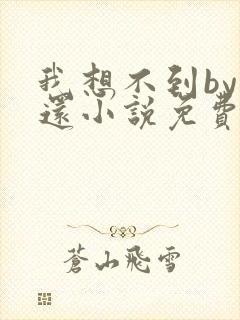 我想不到by
還小說免費
蒼山飛雪